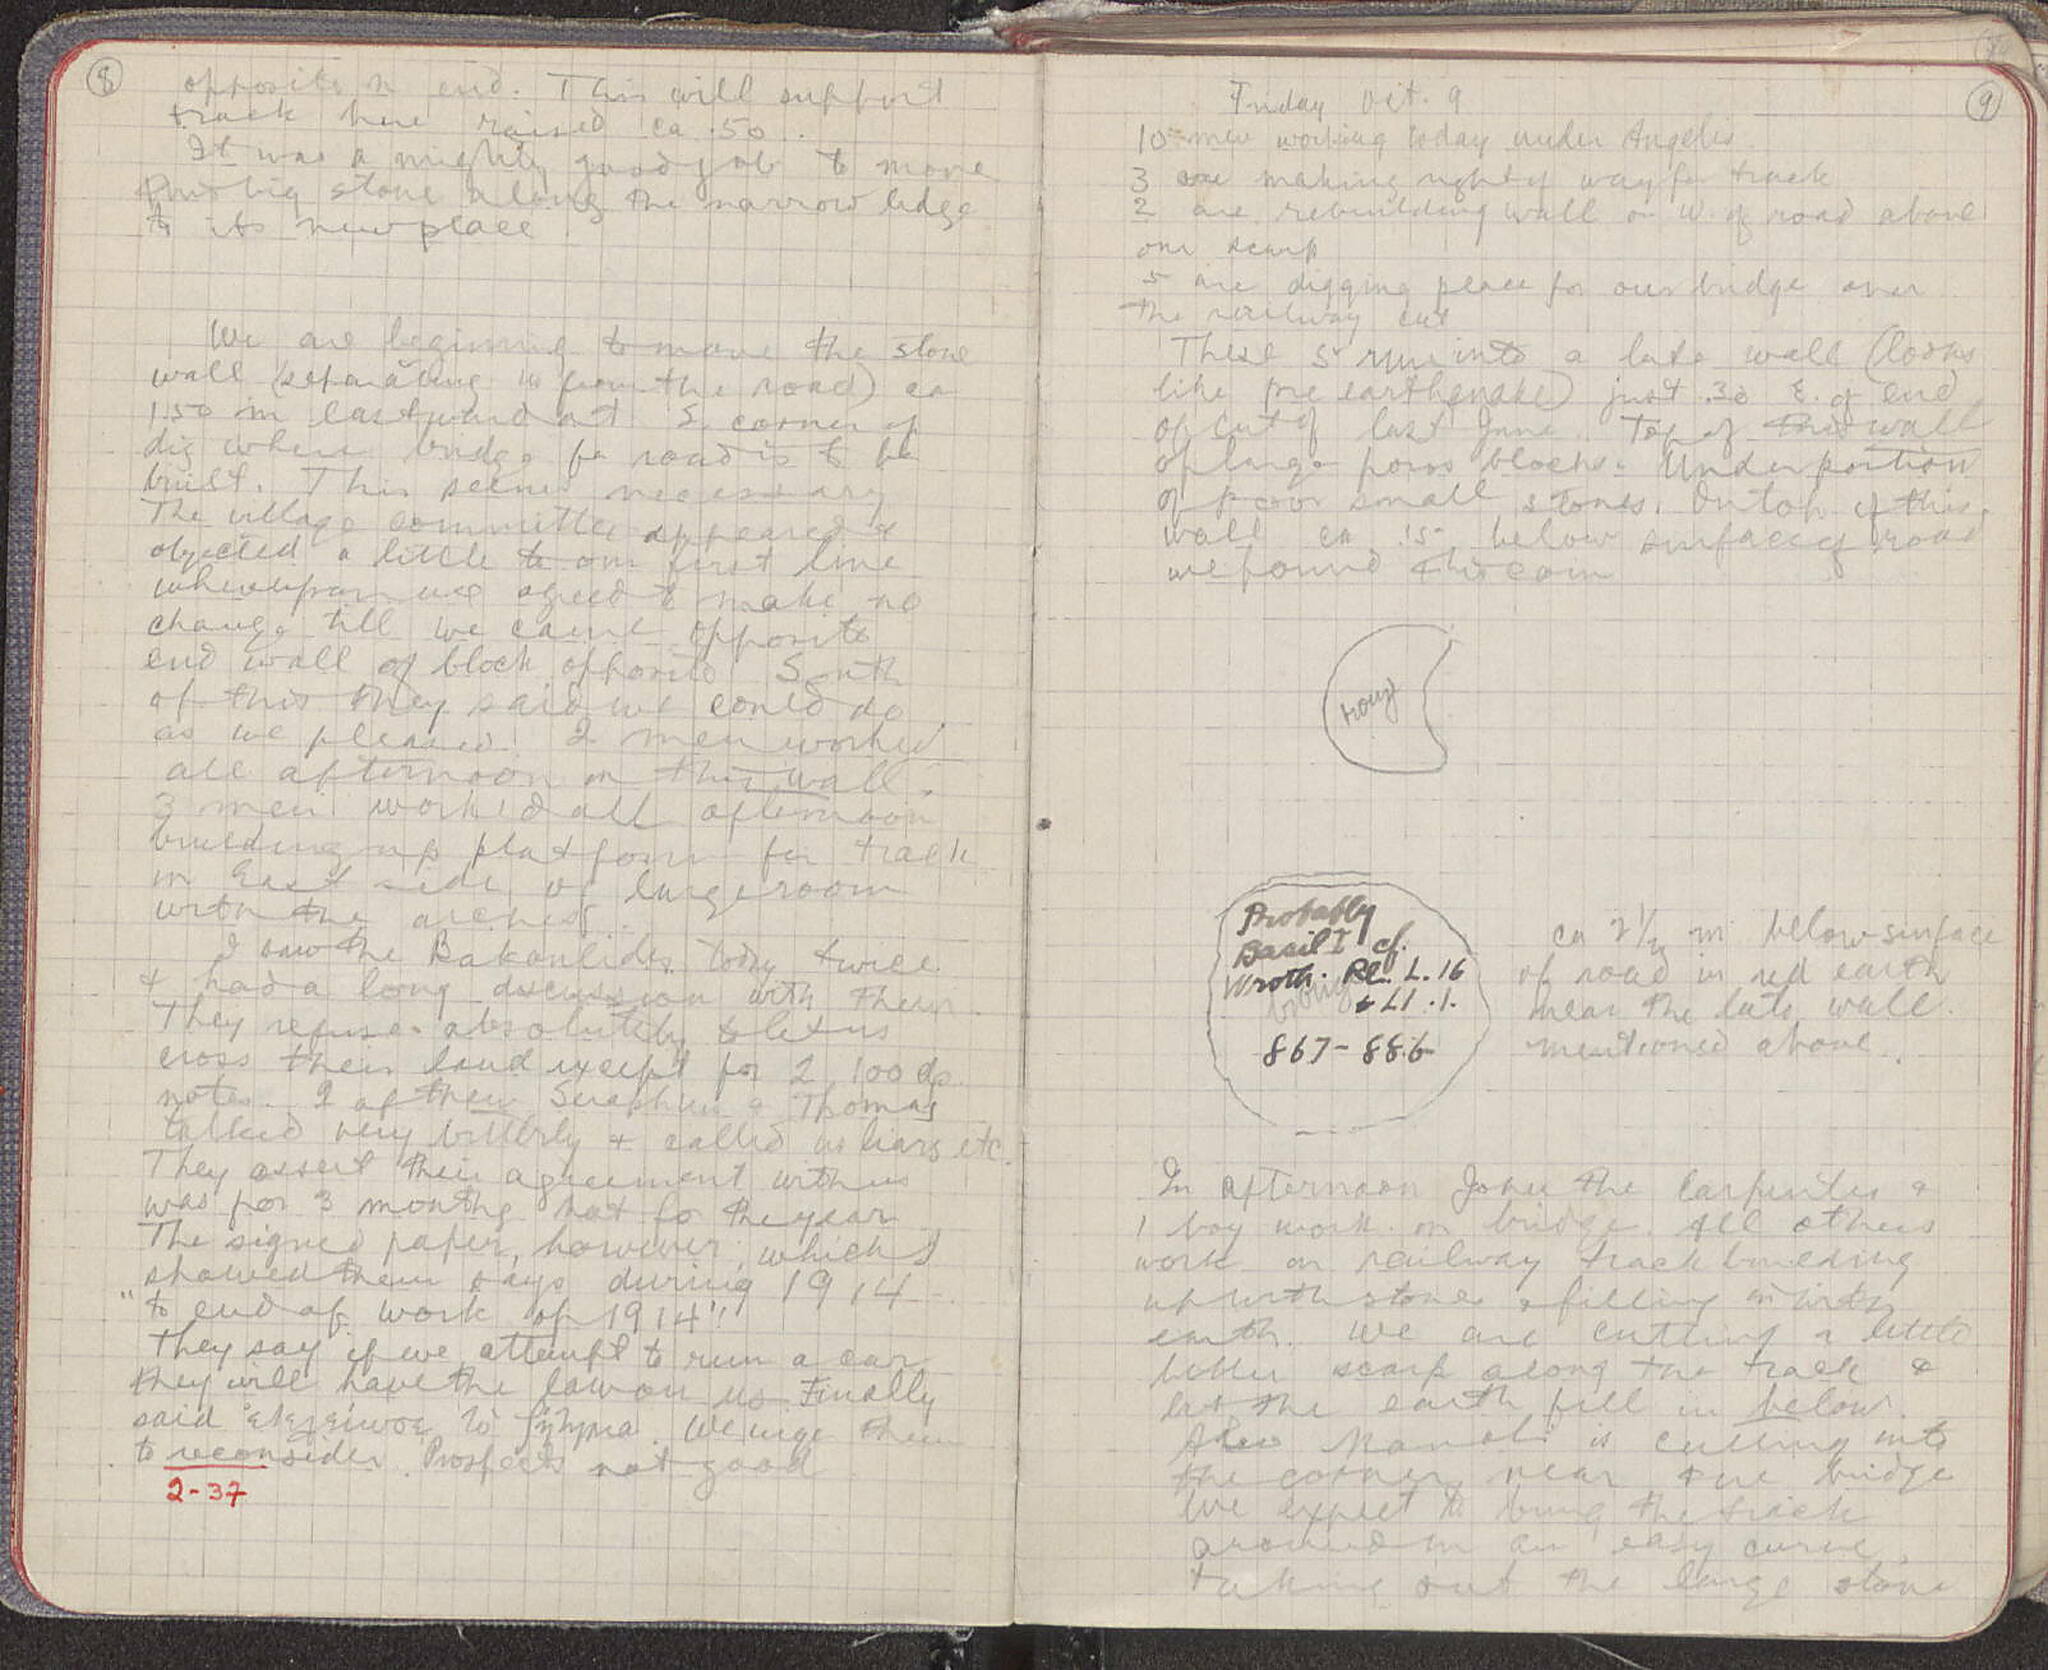 8
opposite N end. This will support
track here raised ca .50.
It was a mighty good job to move
this big stone along the narrow ledge
to its new place
We are beginning to move the stone
wall (separating us from the road) ca
1.50 m eastward at S. corner of
dig where bridge for road is to be
built. This seems necessary
The village committee appeared &
objected a little to our first line
whereupon we agreed to make no
change till we came opposite
end wall of block opposite South
of this they said we could do
as we pleased. 2 men worked
all afternoon on this wall.
3 men worked all afternoon
building up platform for track
in East side of large room
with the arches.
I saw the Bakoulides today twice
& had a long discussion with them.
They refuse absolutely to let us
cross their land except for 2 100 dr.
notes. 2 of them Seraphim & Thomas
talked very bitterly & called us liars etc.
They assert their agreement with us
was for 3 months not for the year
The signed paper, however, which I
showed them says during 1914
"to end of work of 1914".
They say if we attempt to run a car
they will have the law on us. Finally
said τὸ ζήτημα. We urge them
to reconsider. Prospects not good
2-37
9
Friday Oct. 9
10 men working today under Angelis.
3 are making right of way for track
2 are rebuilding wall on W. of road above
our scarp
5 are digging place for our bridge over
the railway cut
These 5 run into a late wall (looks
like pre earthquake) just .30 E. of end
of cut of last June. Top of this wall
of large poros blocks. Under portion
of poor small stones. On top of this
wall ca .15 below surface of road
we found this coin
Probably
Basil I cf.
Wroth. Pl. L. 16
& LI. 1.
867-886
ca 2 1/2 m below surface
of road in red earth
near the late wall
mentioned above.
In afternoon John the carpenter &
1 boy work on bridge. All others
work on railway track building
up with stones & filling in with
earth. We are cutting a little
better scarp along the track &
let the earth fill in below.
Also Manoli is cutting into
the corner near the bridge
We expect to bring the track
around in an easy curve,
taking out the large stone